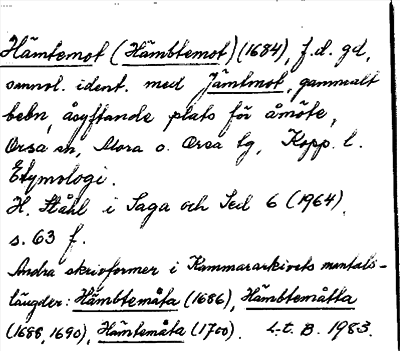 Hämtemot (Hämbtemot) (1684), f.d. gd,
sannol. ident. med Jämtmot, gammalt
bebn, åsyftande plats för åmöte,
Orsa sn, Mora o. Orsa tg, Kopp. l.
Etymologi.
H. Ståhl i Saga och Sed 6 (1964),
s. 63 f.
Andra skrivformer i Kammararkivets mantals-
längder: Hämbtemåta (1686), Hämbtemåtta
(1688, 1690), Hämtemåta (1700). L.t. B. 1983.